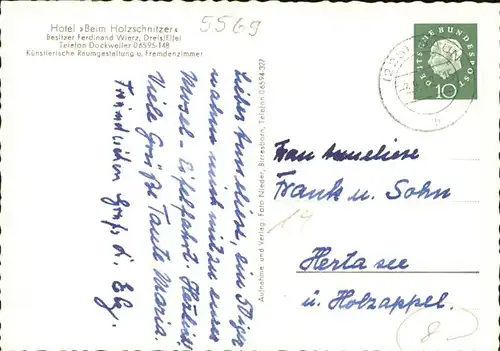 Hotel »Beim Holzschnitzer«
Besitzer Ferdinand Wierz, Dreis/Eifel
Telefon Dockweiler 06595-148
Künstlerische Raumgestaltung u. Fremdenzimmer
5569
Liebe Anneliese, ein
nahm mich mit zu einer
Mosel-Eifelfahrt. Herzlich
Viele Grüße Tante Maria.
Freundlichen Gruß
Aufnahme und Verlag: Foto Nieder, Birresborn, Telefon 06594-327
DEUTSCHE BUNDESPOST
10
Frau Anneliese
Frank u. Sohn
Hertasee
ü. Holzappel.
14
8-